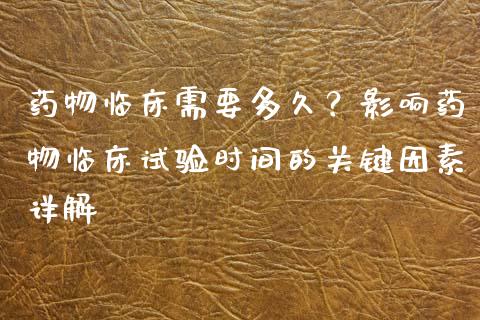 药物临床需要多久？影响药
物临床试验时间的关键因素
详解